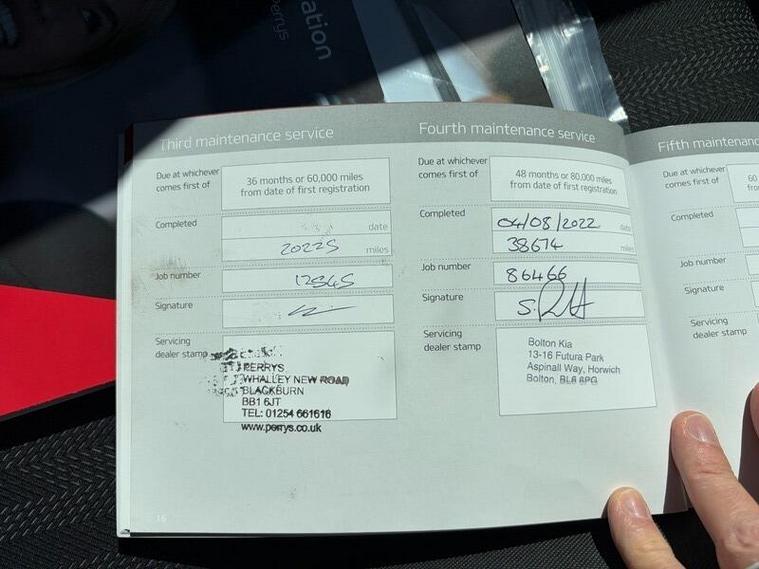 ation
Perrys
Third maintenance service
Due at whichever
comes first of
36 months or 60,000 miles
from date of first registration
Completed
date
20225 miles
Job number
12545
Signature
Servicing
dealer stamp
PERRYS
WHALLEY NEW ROAD
BLACKBURN
BB1 6JT
TEL: 01254 661616
www.perrys.co.uk
16
Fourth maintenance service
Due at whichever
comes first of
48 months or 80,000 miles
from date of first registration
Completed
04/08/2022 date
38674 miles
Job number
86466
Signature
Servicing
dealer stamp
Bolton Kia
13-16 Futura Park
Aspinall Way, Horwich
Bolton, BL6 6PG
Fifth maintenanc
Due at whichever
comes first of
60
fro
Completed
Job number
Signature
Servicing
dealer stamp